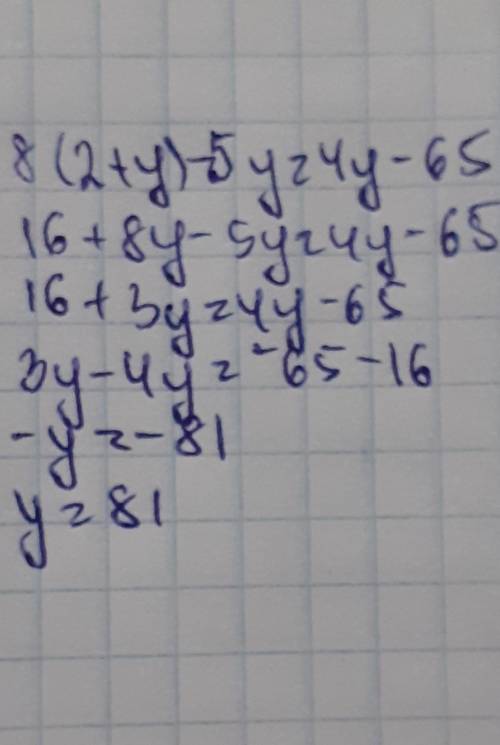 8(2+y)-5y=4y-65
16+8y-5y=4y-65
16+3y=4y-65
3y-4y=-65-16
-y=-81
y=81